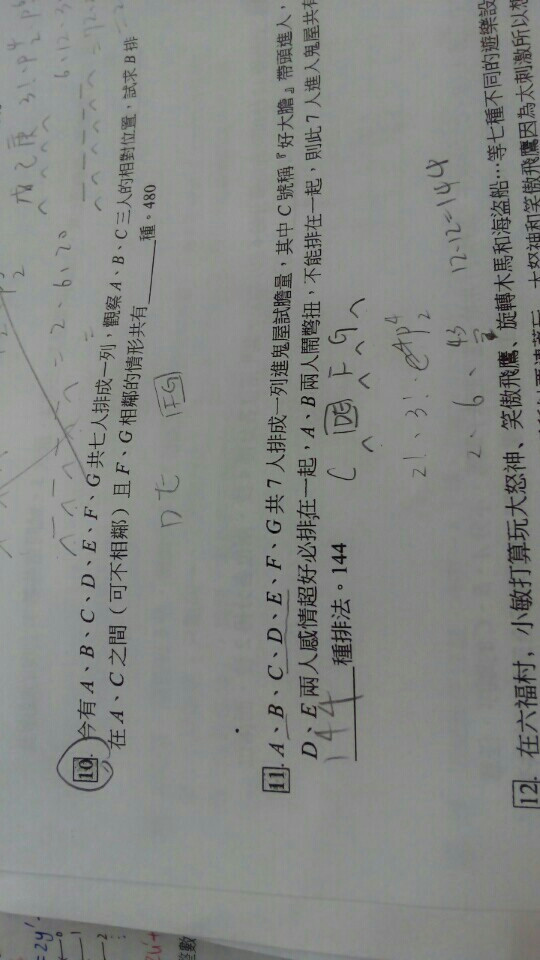 戊己庚 3! · P⁴₂
6 · 12 · 3
= 2 · 6 · 20
10. 今有 A、B、C、D、E、F、G 共七人排成一列，觀察 A、B、C 三人的相對位置，試求 B 排
在 A、C 之間（可不相鄰）且 F、G 相鄰的情形共有______種。480
D E FG
11. A、B、C、D、E、F、G 共 7 人排成一列進鬼屋試膽量，其中 C 號稱『好大膽』帶頭進人，
D、E 兩人感情超好必排在一起，A、B 兩人鬧彆扭，不能排在一起，則此 7 人進入鬼屋共有
144 種排法。144
C DE F G
2! · 3! · P⁴₂
2 · 6 · 43
12·12=144
12. 在六福村，小敏打算玩大怒神、笑傲飛鷹、旋轉木馬和海盜船…等七種不同的遊樂設
大怒神和笑傲飛鷹因為太刺激所以想
=2y'
整數